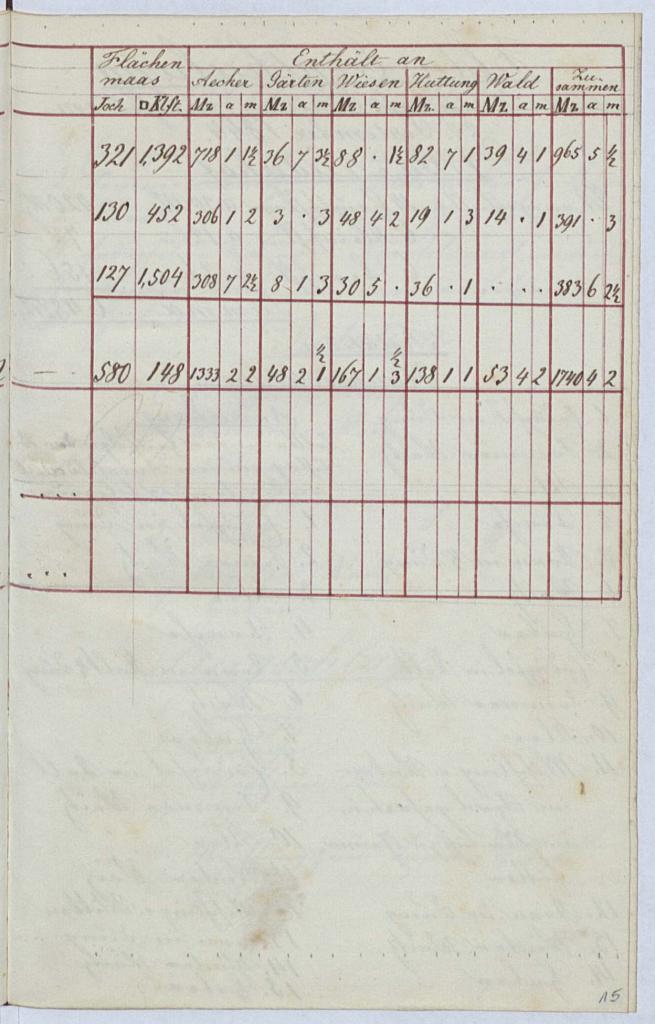 Flächen Enthält an
maas Aecker Gärten Wiesen Huttung Wald Zu-
sammen
Joch □Klft. Mz a m Mz. a m Mz. a m Mz. a m Mz. a m Mz. a m
321 1,392 718 1 1½ 36 7 3½ 88 . 1½ 82 7 1 39 4 1 965 5 ½
130 452 306 1 2 3 . 3 48 4 2 19 1 3 14 . 1 391 . 3
127 1,504 308 7 2½ 8 1 3 30 5 . 36 . 1 . . . 383 6 2½
½ ½
— 580 148 1333 2 2 48 2 1 167 1 3 138 1 1 53 4 2 1740 4 2
. . . .
. . .
15